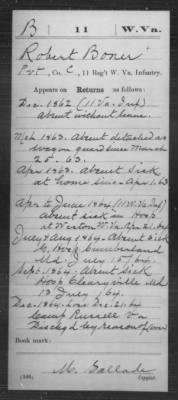 B | 11 | W. Va.
Robert Boner
Pvt, Co. C, 11 Reg't W. Va. Infantry.
Appears on Returns as follows:
Dec. 1862 (11 Va. Inf)
absent without leave.
Mch 1863. Absent detached as
wagon guard since March
25. 63.
Apr 1863. Absent sick
at home since Apr 1. 63
Apr to June 1864 (11 W. Va. Inf)
absent sick in Hosp.
at Weston W. Va. Apr 21. 64
July & Aug 1864. Absent Sick
Hosp Cumberland
Md July 15/64
Sept. 1864. Absent Sick
Hosp Clearyville Md
July 64.
Dec. 1864. Loss Dec. 21. 64
Camp Russell Va
Dischgd by reason of
Book mark:
M. Gallade
(546) Copyist.